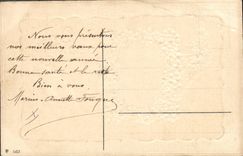 Nous vous présentons
nos meilleurs vœux pour
cette nouvelle année
Bonne santé et le reste
Bien à vous
Marius Annette